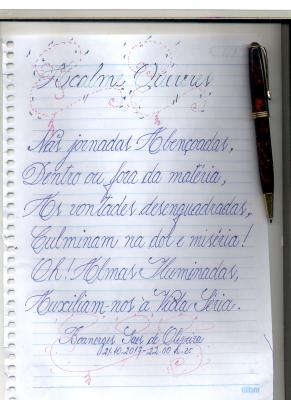 Acalme
Nas jornadas Abençoadas,
Dentro ou fora da matéria,
As vontades desenquadradas,
Culminam na dor e miséria!
Oh! Almas Iluminadas,
Auxiliam-nos à Vida Séria.
Boanerges Saes de Oliveira
21.10.2017-22:00 h.